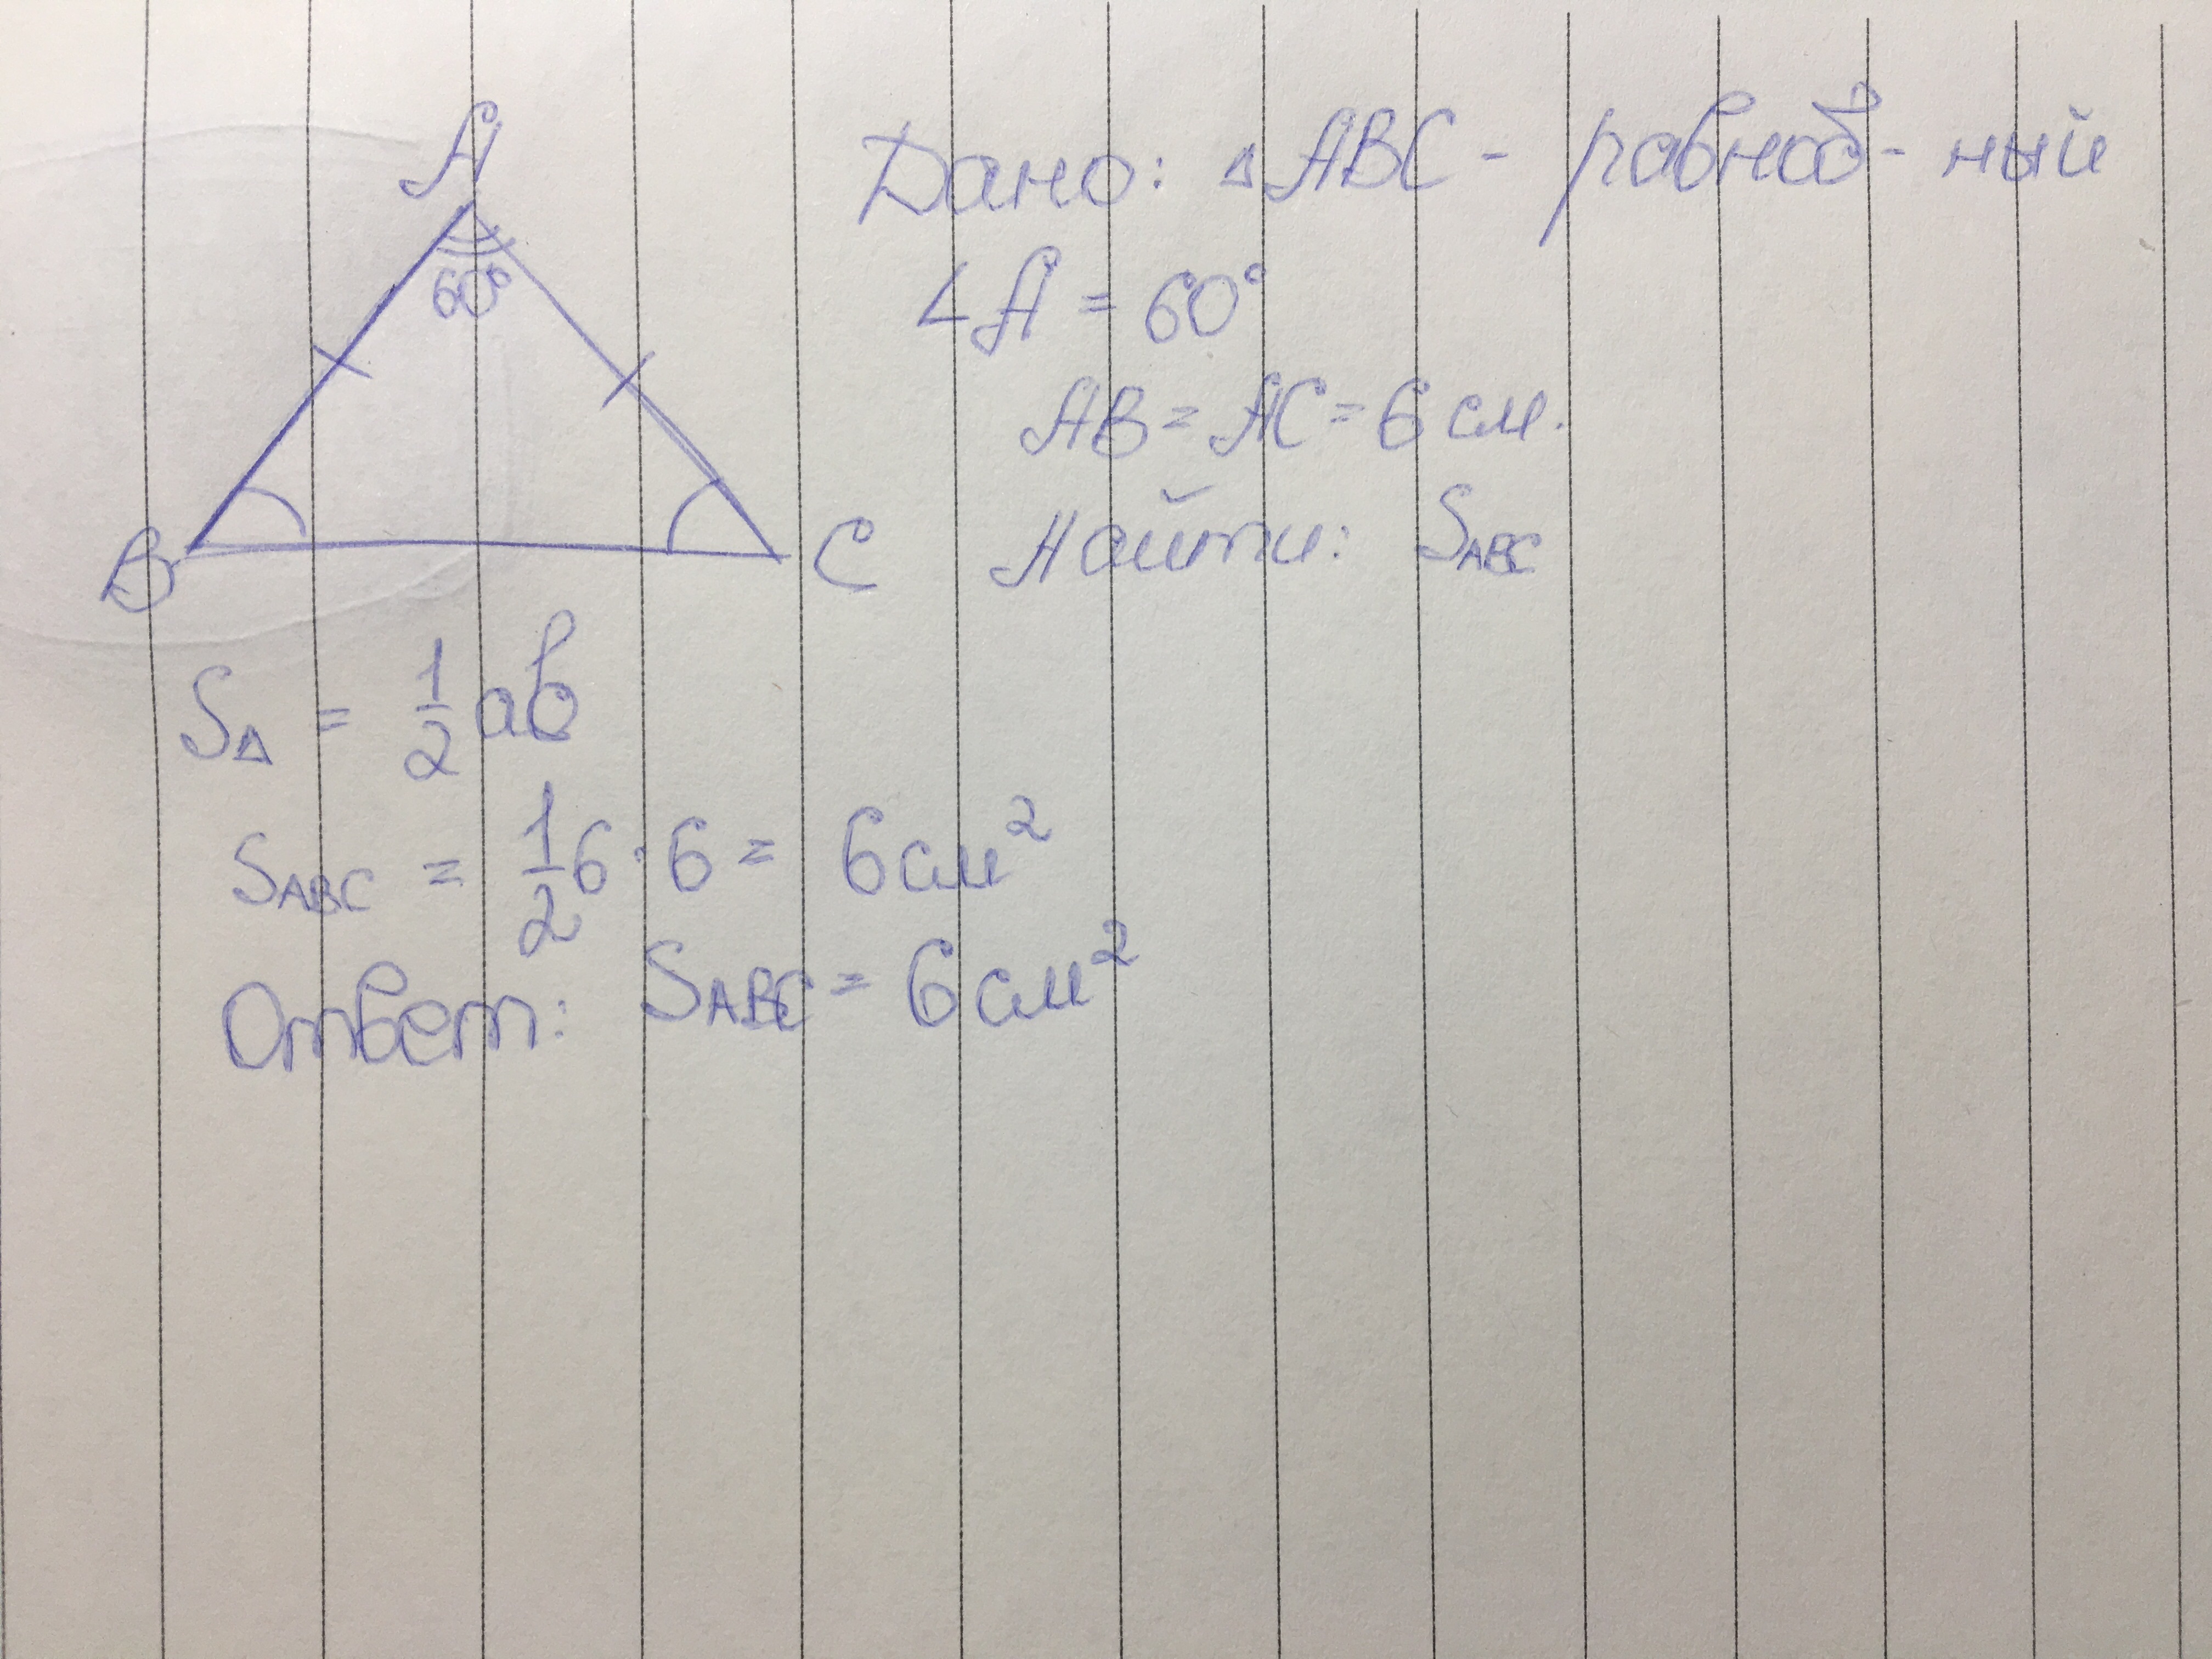 A
60°
B
C
Дано: △ABC - равноб-ный
∠A = 60°
AB = AC = 6 см.
Найти: SABC
S△ = 1/2 ab
SABC = 1/2 6 · 6 = 6 см²
Ответ: SABC = 6 см²